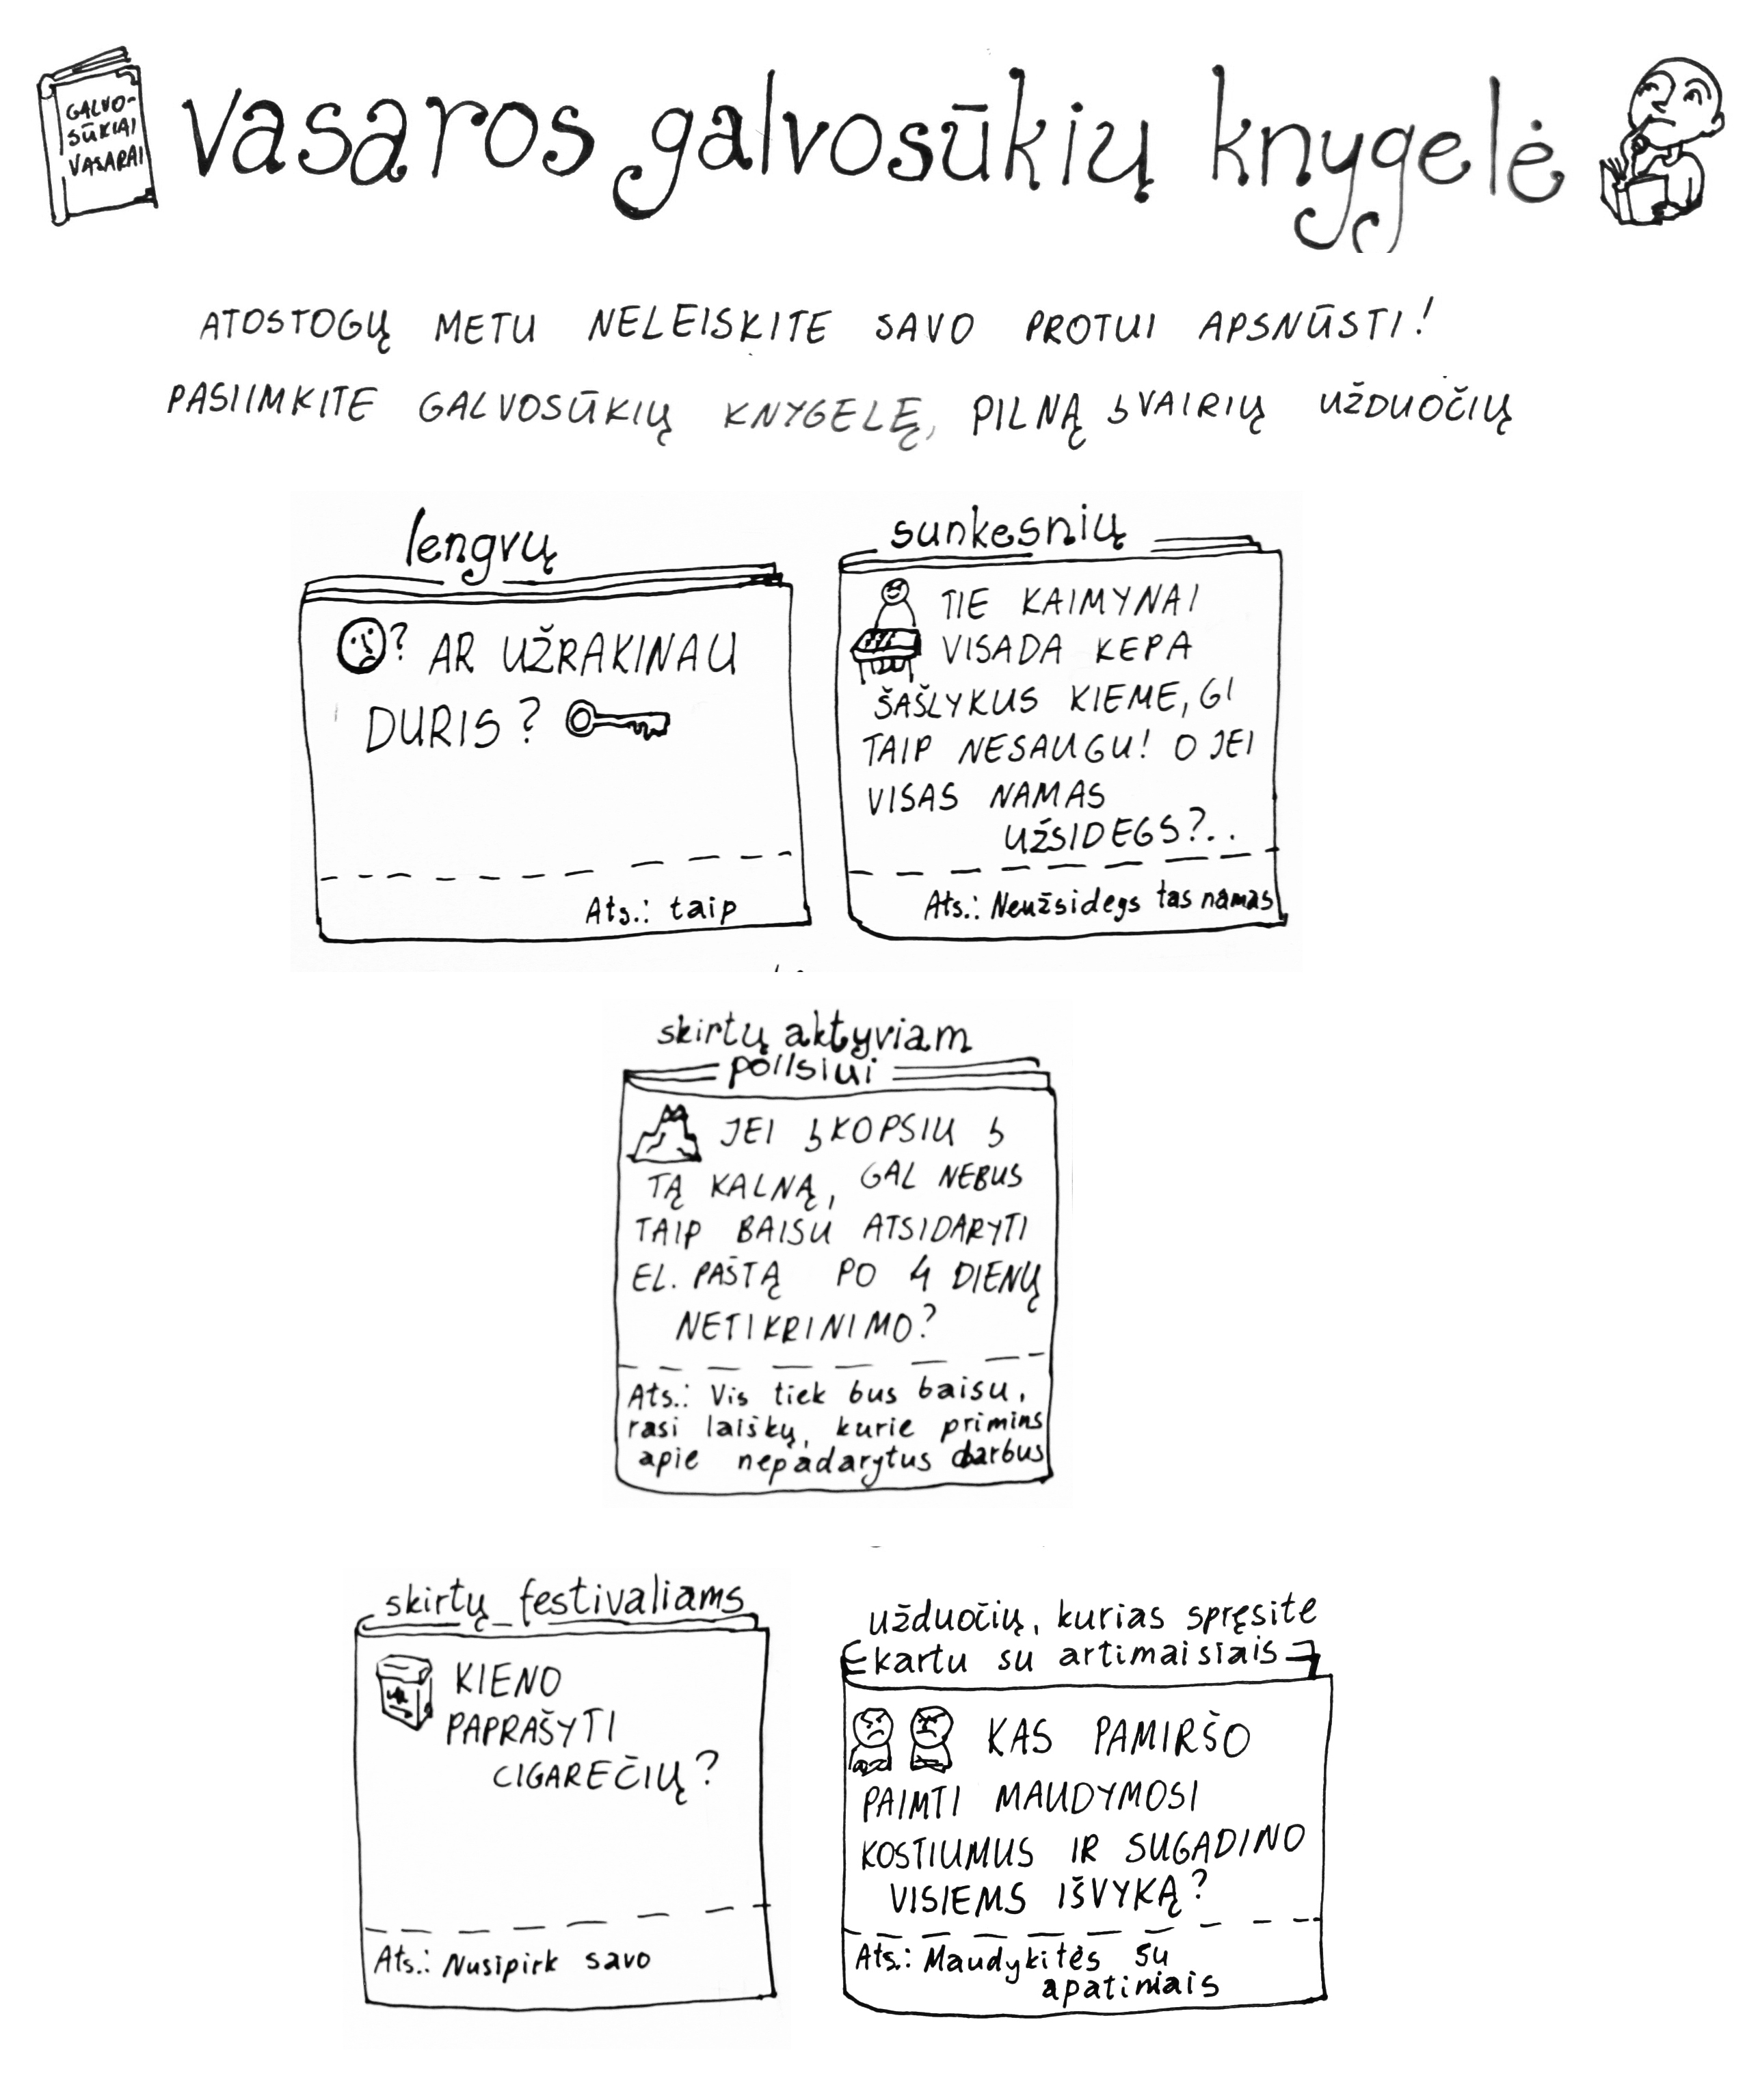 GALVO-
SŪKIAI
VASARAI
vasaros galvosūkių knygelė
ATOSTOGŲ METU NELEISKITE SAVO PROTUI APSNŪSTI!
PASIIMKITE GALVOSŪKIŲ KNYGELĘ, PILNĄ ĮVAIRIŲ UŽDUOČIŲ
lengvų
? AR UŽRAKINAU
DURIS?
Ats.: taip
sunkesnių
TIE KAIMYNAI
VISADA KEPA
ŠAŠLYKUS KIEME, GI
TAIP NESAUGU! O JEI
VISAS NAMAS
UŽSIDEGS?..
Ats.: Neužsidegs tas namas
skirtų aktyviam
poilsiui
JEI ĮKOPSIU Į
TĄ KALNĄ, GAL NEBUS
TAIP BAISU ATSIDARYTI
EL. PAŠTĄ PO 4 DIENŲ
NETIKRINIMO?
Ats.: Vis tiek bus baisu,
rasi laiškų, kurie primins
apie nepadarytus darbus
skirtų festivaliams
KIENO
PAPRAŠYTI
CIGAREČIŲ?
Ats.: Nusipirk savo
užduočių, kurias spręsite
kartu su artimaisiais
KAS PAMIRŠO
PAIMTI MAUDYMOSI
KOSTIUMUS IR SUGADINO
VISIEMS IŠVYKĄ?
Ats.: Maudykitės su
apatiniais